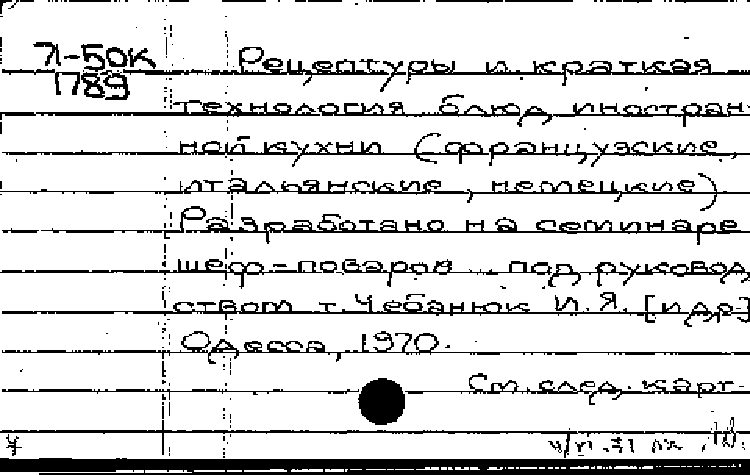 71-50К
1789
Рецептуры и краткая
технология блюд иностран-
ной кухни (французские,
итальянские, немецкие)
Разработано на семинаре
шеф-поваров .. под руковод-
ством т. Чебанюк И.Я. [и др.]
Одесса, 1970.
См. след. карт.